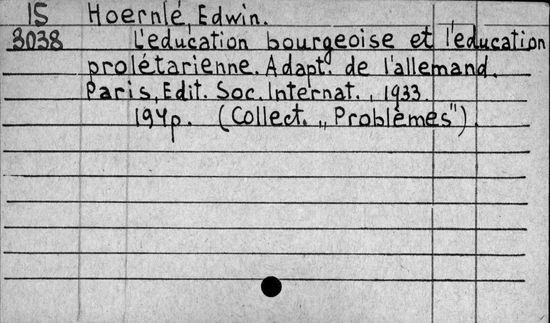 15 Hoernlé, Edwin.
3038 L'education bourgeoise et l'education
prolétarienne. Adapt. de l'allemand.
Paris, Edit. Soc. Internat., 1933.
194p. (Collect. „Problèmes")